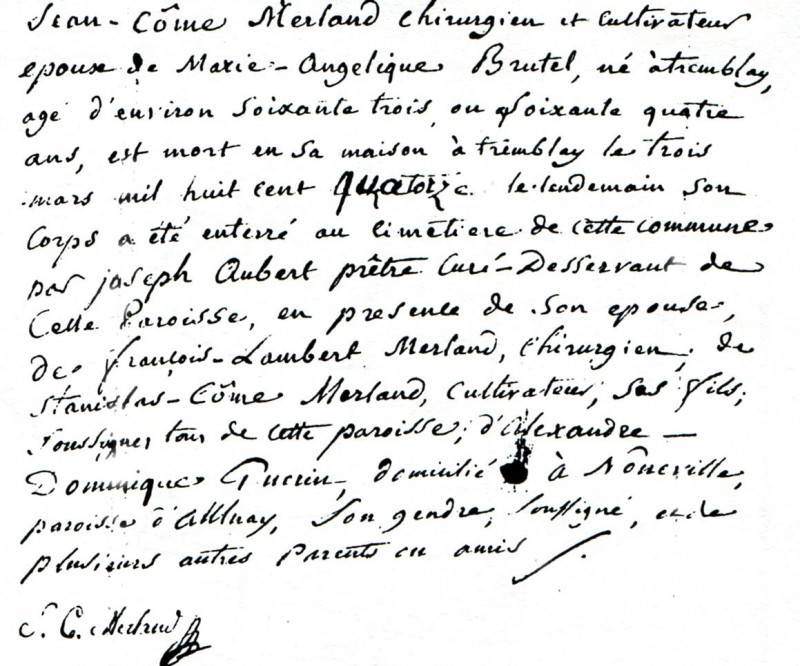 Jean-Côme Merland Chirurgien et Cultivateur
epoux de Marie-Angelique Brutel, né à tremblay,
agé d'environ Soixante trois, ou Soixante quatre
ans, est mort en sa maison à tremblay le trois
mars mil huit cent quatorze. le lendemain son
Corps a été enterré au cimetiere de cette commune
par joseph Aubert prêtre Curé-Desservant de
Cette Paroisse, en presence de son epouse,
de françois-Lambert Merland, Chirurgien, de
Stanislas-Côme Merland, Cultivateur, ses fils,
Soussignés tous de cette paroisse; d'Alexandre —
Dominique Guerin, domicilié à Nôneville,
paroisse d'Aulnay, Son gendre, Soussigné, et de
plusieurs autres Parents ou amis
S. C. Merland